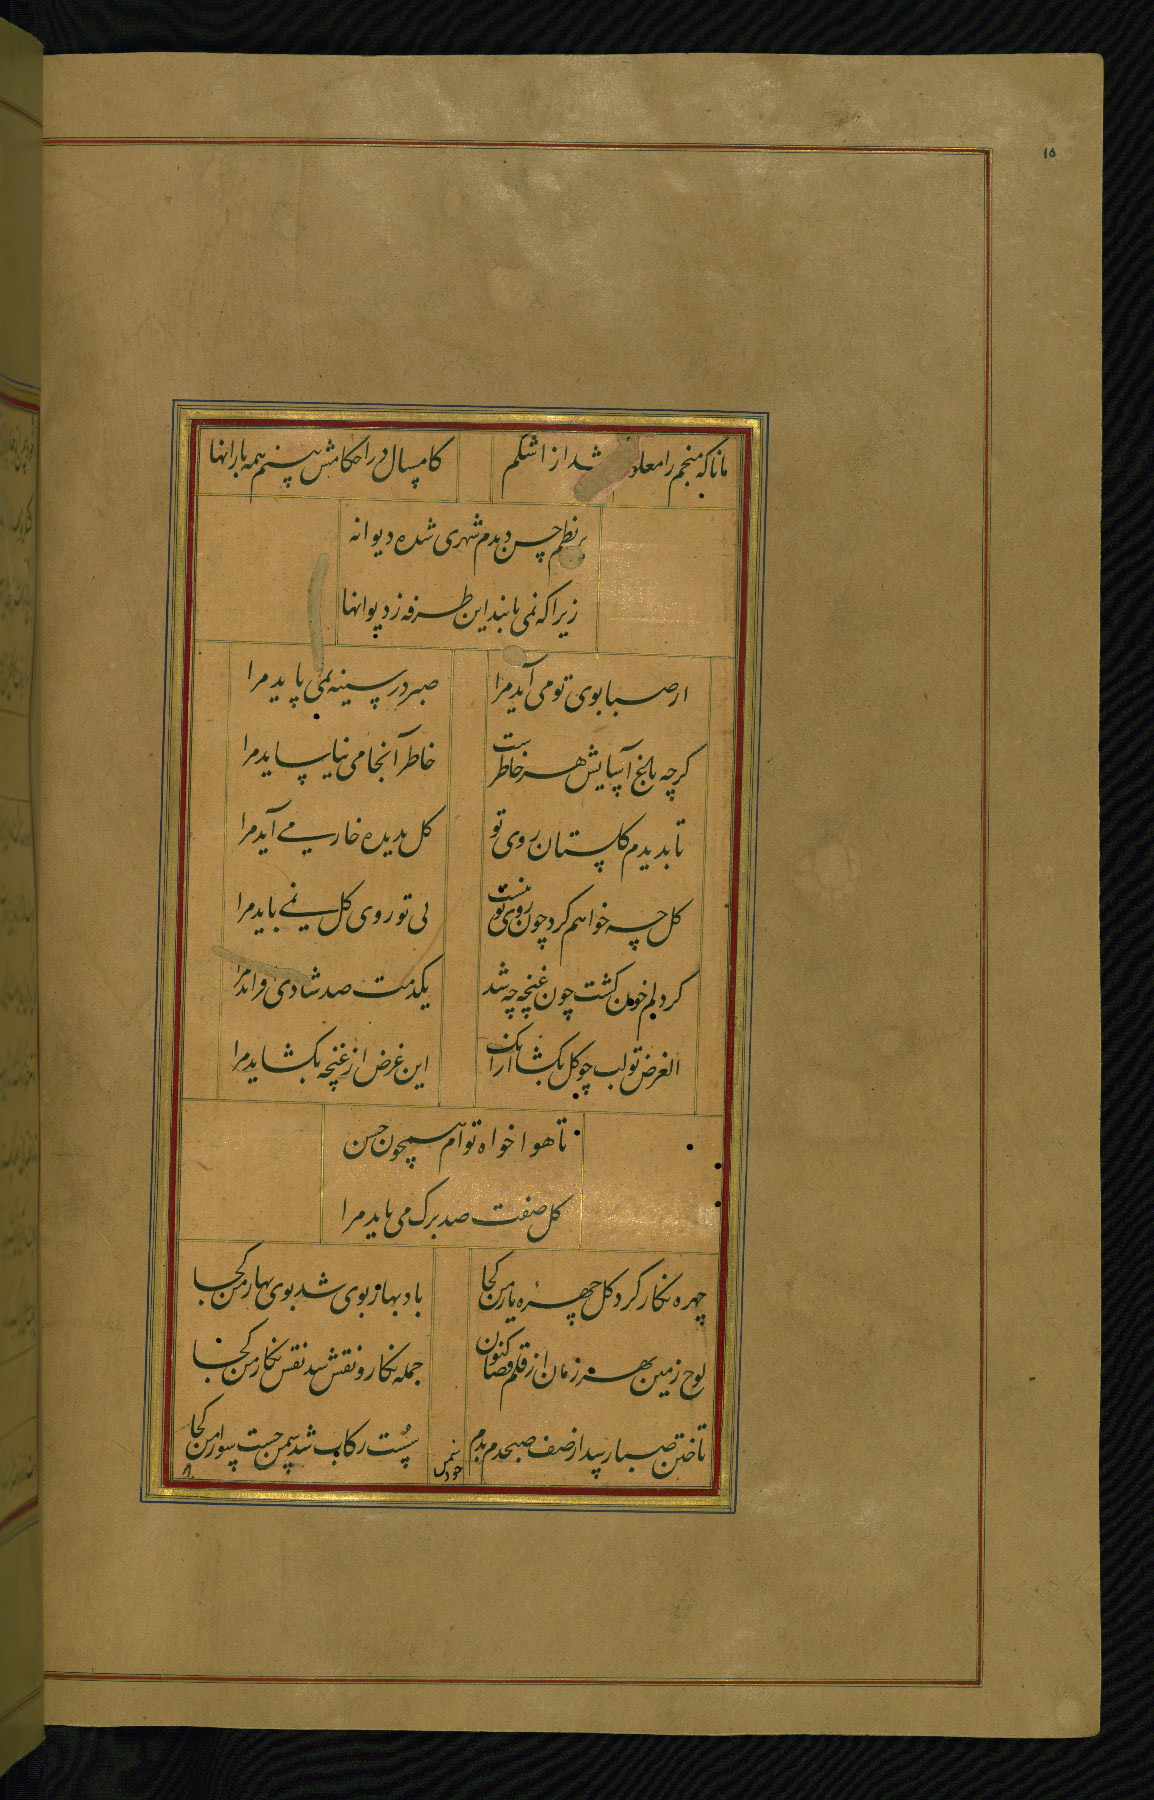 ۱۵
مانا که منجم را معلوم شد از اشکم کامسال در احکامش بینم همه بارانها
بر نظم حسن دیدم شهری شده دیوانه
زیرا که نمی یابند این طرفه ز دیوانها
از صبا بوی تو می آید مرا صبر در سینه نمی پاید مرا
کرچه باغ آسایش هر خاطریست خاطر آنجا می نیاساید مرا
تا بدیدم کلستان روی تو کل بدیده خار می آید مرا
کل چه خواهم کرد چون روی تو نیست بی تو روی کل نمی باید مرا
کر دلم خون کشت چون غنچه چه شد یکدمت صد شادی افزاید مرا
الغرض تو لب چو کل بکشا از آنک این غرض از غنچه بکشاید مرا
تا هوا خواه توام همچون حسن
کل صفت صد برک می باید مرا
چهره نکار کرد کل چهره یار من کجا باد بهار بوی شد بوی بهار من کجا
لوح زمین بهر زمان از قلم قضا کنون جمله نکار و نقش شد نقش نکار من کجا
تاختن صبا رسید از صف صبحدم بدم سست رکاب شد سمن چست سوار من کجا